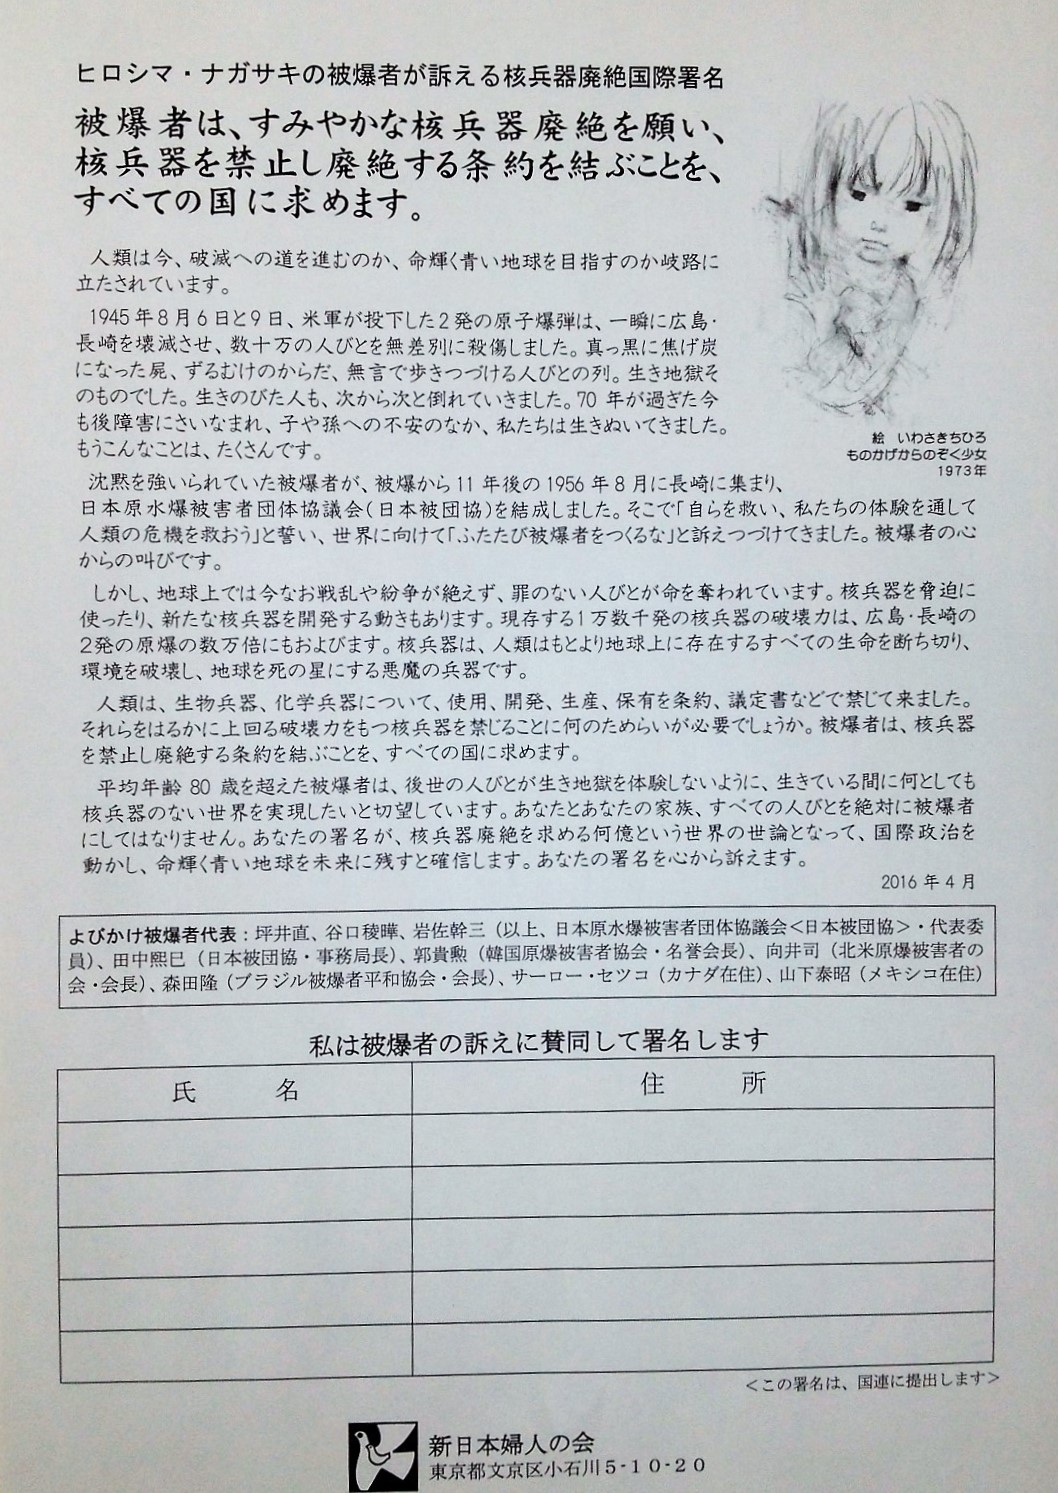 ヒロシマ・ナガサキの被爆者が訴える核兵器廃絶国際署名
被爆者は、すみやかな核兵器廃絶を願い、
核兵器を禁止し廃絶する条約を結ぶことを、
すべての国に求めます。
人類は今、破滅への道を進むのか、命輝く青い地球を目指すのか岐路に
立たされています。
1945年8月6日と9日、米軍が投下した2発の原子爆弾は、一瞬に広島・
長崎を壊滅させ、数十万の人びとを無差別に殺傷しました。真っ黒に焦げ炭
になった屍、ずるむけのからだ、無言で歩きつづける人びとの列。生き地獄そ
のものでした。生きのびた人も、次から次と倒れていきました。70 年が過ぎた今
も後障害にさいなまれ、子や孫への不安のなか、私たちは生きぬいてきました。
もうこんなことは、たくさんです。
絵 いわさきちひろ
ものかげからのぞく少女
1973年
沈黙を強いられていた被爆者が、被爆から11 年後の1956 年8月に長崎に集まり、
日本原水爆被害者団体協議会(日本被団協)を結成しました。そこで「自らを救い、私たちの体験を通して
人類の危機を救おう」と誓い、世界に向けて「ふたたび被爆者をつくるな」と訴えつづけてきました。被爆者の心
からの叫びです。
しかし、地球上では今なお戦乱や紛争が絶えず、罪のない人びとが命を奪われています。核兵器を脅迫に
使ったり、新たな核兵器を開発する動きもあります。現存する1万数千発の核兵器の破壊力は、広島・長崎の
2発の原爆の数万倍にもおよびます。核兵器は、人類はもとより地球上に存在するすべての生命を断ち切り、
環境を破壊し、地球を死の星にする悪魔の兵器です。
人類は、生物兵器、化学兵器について、使用、開発、生産、保有を条約、議定書などで禁じて来ました。
それらをはるかに上回る破壊力をもつ核兵器を禁じることに何のためらいが必要でしょうか。被爆者は、核兵器
を禁止し廃絶する条約を結ぶことを、すべての国に求めます。
平均年齢 80 歳を超えた被爆者は、後世の人びとが生き地獄を体験しないように、生きている間に何としても
核兵器のない世界を実現したいと切望しています。あなたとあなたの家族、すべての人びとを絶対に被爆者
にしてはなりません。あなたの署名が、核兵器廃絶を求める何億という世界の世論となって、国際政治を
動かし、命輝く青い地球を未来に残すと確信します。あなたの署名を心から訴えます。
2016 年4月
よびかけ被爆者代表：坪井直、谷口稜曄、岩佐幹三（以上、日本原水爆被害者団体協議会＜日本被団協＞・代表委
員）、田中煕巳（日本被団協・事務局長）、郭貴勲（韓国原爆被害者協会・名誉会長）、向井司（北米原爆被害者の
会・会長）、森田隆（ブラジル被爆者平和協会・会長）、サーロー・セツコ（カナダ在住）、山下泰昭（メキシコ在住）
私は被爆者の訴えに賛同して署名します
氏 名 住 所
＜この署名は、国連に提出します＞
新日本婦人の会
東京都文京区小石川5-10-20